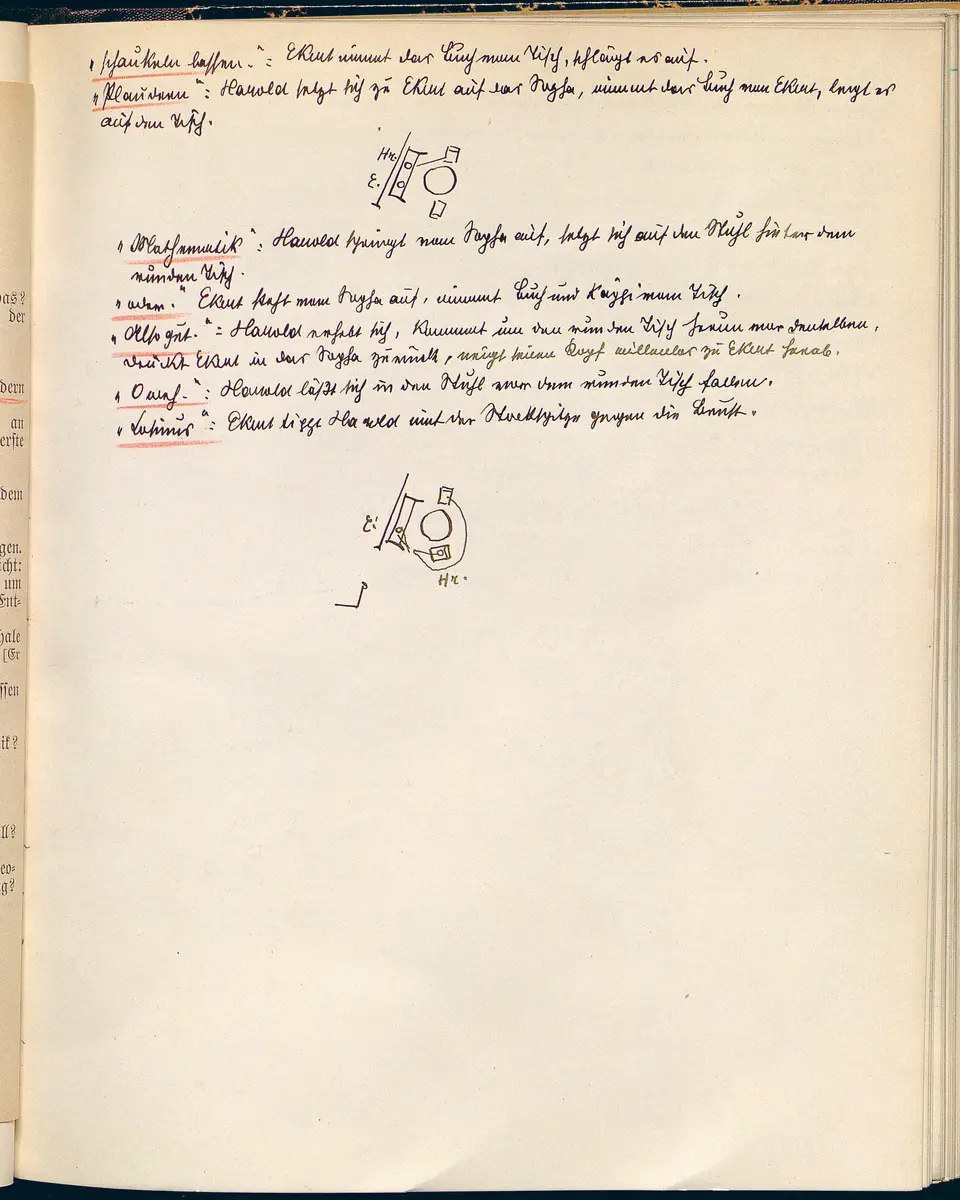 „schaukeln lassen.“: Ekart nimmt das Buch vom Tisch, schlägt es auf.
„Plaudern“: Harold setzt sich zu Ekart auf das Sopha, nimmt das Buch von Ekart, legt es
auf den Tisch.
Hr.
E.
„Mathematik“: Harold springt vom Sopha auf, setzt sich auf den Stuhl hinter dem
runden Tisch.
„oder.“ Ekart steht vom Sopha auf, nimmt Buch und Käppi vom Tisch.
„Also gut.“= Harold erhebt sich, kommt um den runden Tisch herum vor denselben,
drückt Ekart in das Sopha zurück, neigt seinen Kopf zu Ekart herab.
Harold läßt sich in den Stuhl vor dem runden Tisch fallen.
Ekart tippt Harold mit der Stockspitze gegen die Brust.
E.
Hr.
as?
der
dern
an
erste
dem
gen.
cht:
um
Ent-
hale
[Er
ssen
ik?
ll?
eo-
g?